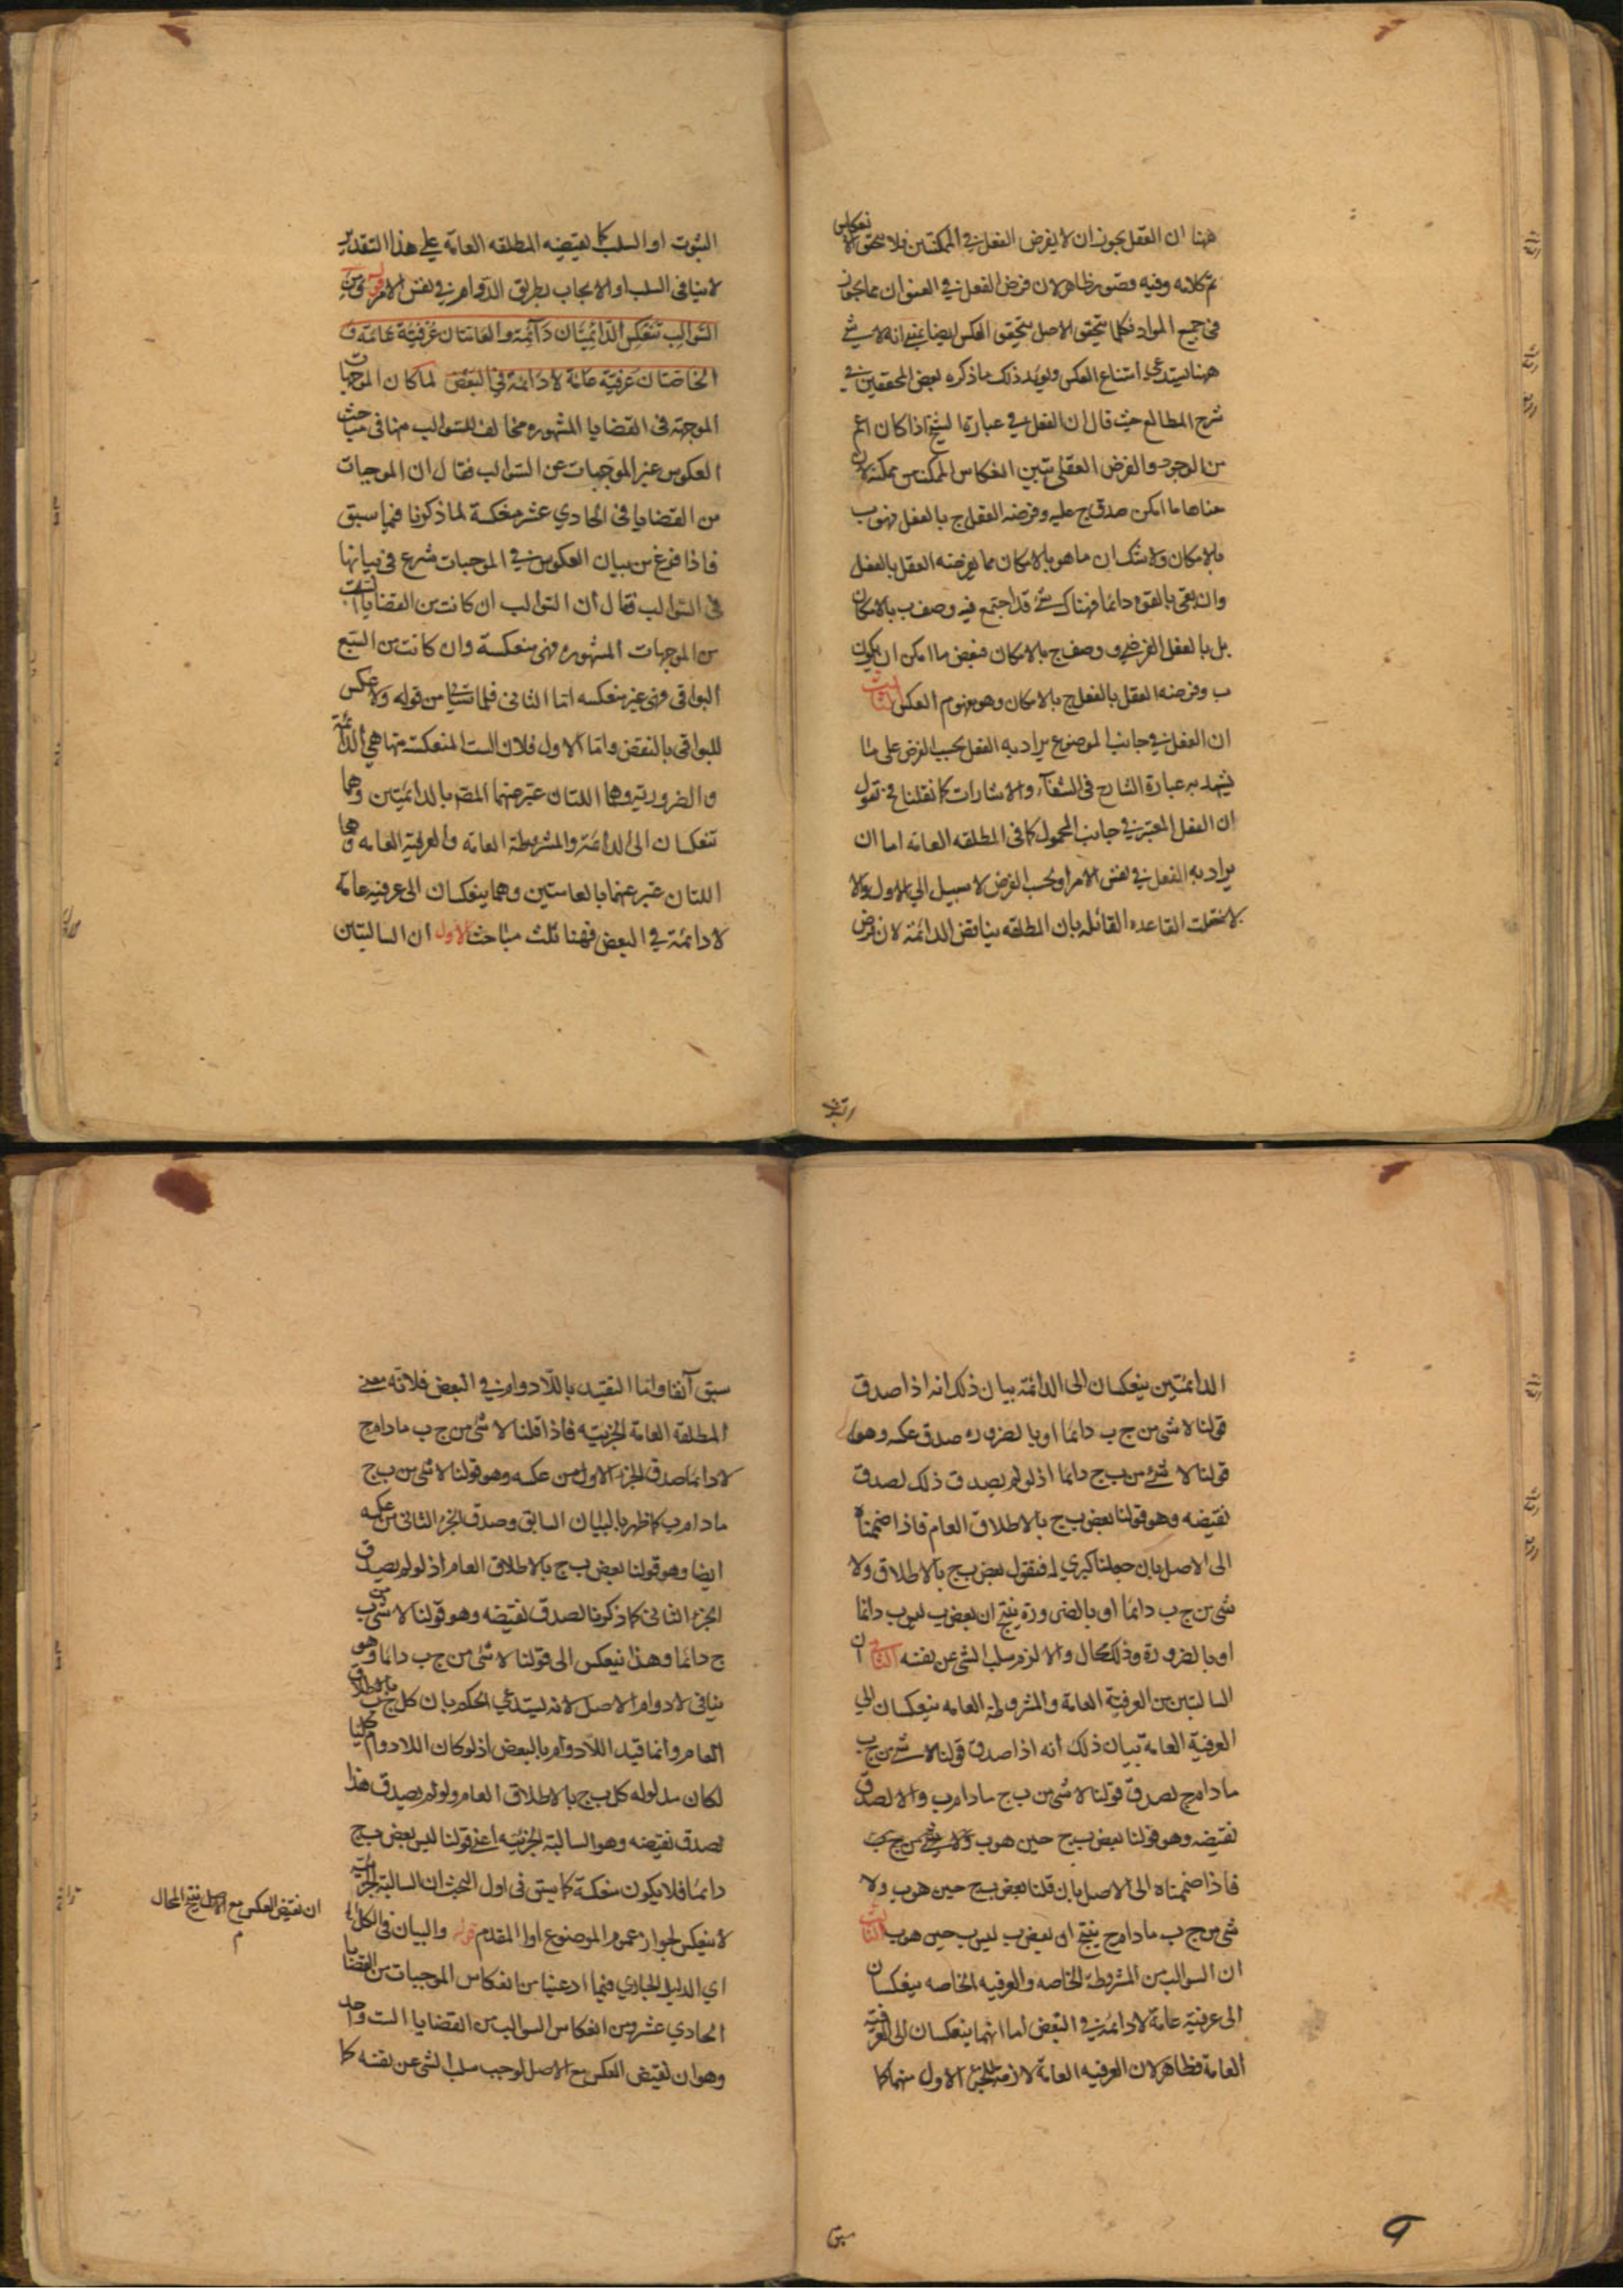 ههنا ان العقل يجوز ان لا يفرض الفعل في الممكنتين فلا يتحقق الانعكاس
تم كلامه وفيه قصور ظاهر لان فرض الفعل في العنوان مما يجوز
في جميع المواد فكلما يتحقق الاصل يتحقق العكس ايضا يعني انه لا شيء
ههنا يستدعي امتناع العكس ويؤيد ذلك ما ذكره بعض المحققين في
شرح المطالع حيث قال ان الفعل في عبارة الشيخ اذا كان اعم
من الوجود والفرض العقلي تبين انعكاس الممكنة ممكنة لان
معناها ما امكن صدق ج عليه وفرضه العقل ج بالفعل فهو ب
بالامكان ولا شك ان ما هو بالامكان مما يفرضه العقل بالفعل
وان بقي بالقوة دائما فهناك شيء قد اجتمع فيه وصف ب بالامكان
بل بالفعل الفرضي ووصف ج بالامكان فبعض ما امكن ان يكون
ب وفرضه العقل بالفعل ج بالامكان وهو مفهوم العكس الثالث
ان الفعل في جانب الموضوع يراد به الفعل بحسب الفرض على ما
يشهد به عبارة الشارح في الشفآء والاشارات كما نقلنا فح نقول
ان الفعل المعتبر في جانب المحمول كما في المطلقه العامه اما ان
يراد به الفعل في نفس الامر او بحسب الفرض لا سبيل الي الاول والا
لاختلت القاعده القائله بان المطلقه يناقض الدائمة لان فرض
الثبوت او السلب كما يقتضيه المطلقه العامه علي هذا التقدير
لا ينافي السلب او الايجاب بطريق الدوام في نفس الامر قوله ومن
السَّوالِب تَنعَكِسُ الدّائِمتَان دَآئِمَة والعَامّتان عُرْفيَّة عَامّة و
الخَاصّتانِ عُرفيّة عَامّة لا دَائمة في البَعْض لما كان الموجبات
الموجهة في القضايا المشهوره مخالفا للسوالب منها في مباحث
العكوس غير الموجبات عن السوالب فقال ان الموجبات
من القضايا في الحادي عشر منعكسة لما ذكرنا فيما سبق
فاذا فرغ من بيان العكوس في الموجبات شرع في بيانها
في السوالب فقال ان السوالب ان كانت من القضايا الست
من الموجهات المشهوره فهي منعكسة وان كانت من التسع
البواقي فهي غير منعكسه اما الثاني فلما سياتي من قوله ولا عكس
للبواقي بالنقض واما الاول فلان الست المنعكسة منها هي الدائمة
والضرورتيه وهما اللتان عبر عنهما المصر بالدائمتين وهما
تنعكسان الى الدائمة والمشروطة العامه والعرفية العامه وهما
اللتان عبر عنهما بالعامتين وهما ينعكسان الى عرفيه عامة
لا دائمة في البعض فهنا ثلث مباحث الاول ان السالبتين
الدائمتين ينعكسان الى الدائمة بيان ذلك انه اذا صدق
قولنا لا شيء من ج ب دائما او بالضروره صدق عكسه وهو
قولنا لا شيء من ب ج دائما اذ لو لم يصدق ذلك لصدق
نقيضه وهو قولنا بعض ب ج بالاطلاق العام فاذا ضممناه
الى الاصل بان جعلنا كبري له فنقول بعض ب ج بالاطلاق ولا
شيء من ج ب دائما او بالضرورة ينتج ان بعض ب ليس ب دائما
او بالضرورة وذلك محال والا لزم سلب الشيء عن نفسه الثاني ان
السالبتين من العرفية العامة والمشروطة العامه ينعكسان الي
العرفية العامة بيان ذلك انه اذا صدق قولنا لا شيء من ج ب
ما دام ج لصدق قولنا لا شيء من ب ج ما دام ب والا لصدق
نقيضه وهو قولنا بعض ب ج حين هو ب ولا شيء من ج ب
فاذا ضممناه الى الاصل بان قلنا بعض ب ج حين هو ب ولا
شيء من ج ب ما دام ج ينتج ان بعض ب ليس ب حين هو ب الثالث
ان السوالب من المشروطة الخاصه والعرفيه الخاصه ينعكسان
الى عرفية عامة لا دائمة في البعض اما انهما ينعكسان الى العرفية
العامة فظاهر لان العرفيه العامة لازمة للجزء الاول منهما كما
سبق
سبق آنفا واما التقييد باللادوام في البعض فلانه معنى
المطلقة العامة الجزئيه فاذا قلنا لا شيء من ج ب ما دام ج
لا دائما صدق الجزء الاول من عكسه وهو قولنا لا شيء من ب ج
ما دام ب كما ظهر بالبيان السابق وصدق الجزء الثاني من عكسه
ايضا وهو قولنا بعض ب ج بالاطلاق العام اذ لو لم يصدق
الجزء الثاني كما ذكرنا لصدق نقيضه وهو قولنا لا شيء من ب
ج دائما وهذا ينعكس الى قولنا لا شيء من ج ب دائما وهو
ينافي لا دوام الاصل لانه يستدعي الحكم بان كل ج ب بالاطلاق
العام وانما قيد اللادوام بالبعض اذ لو كان اللادوام كليا
لكان مدلوله كل ب ج بالاطلاق العام ولو لم يصدق هذا
لصدق نقيضه وهو السالبة الجزئيه اعني قولنا ليس بعض ب ج
دائما فلا يكون منعكسة كما سبق في اول البحث ان السالبة الجزئية
لا ينعكس لجواز عموم الموضوع او المقدم قوله والبيان في الكل
اي الدليل الجاري فيما ادعينا من انعكاس الموجبات من القضايا
الحادي عشر ومن انعكاس السوالب من القضايا الست واحد
وهو ان نقيض العكس مع الاصل لوجب سلب الشيء عن نفسه كما
ان نقيض العكس مع الاصل ينتج المحال
م